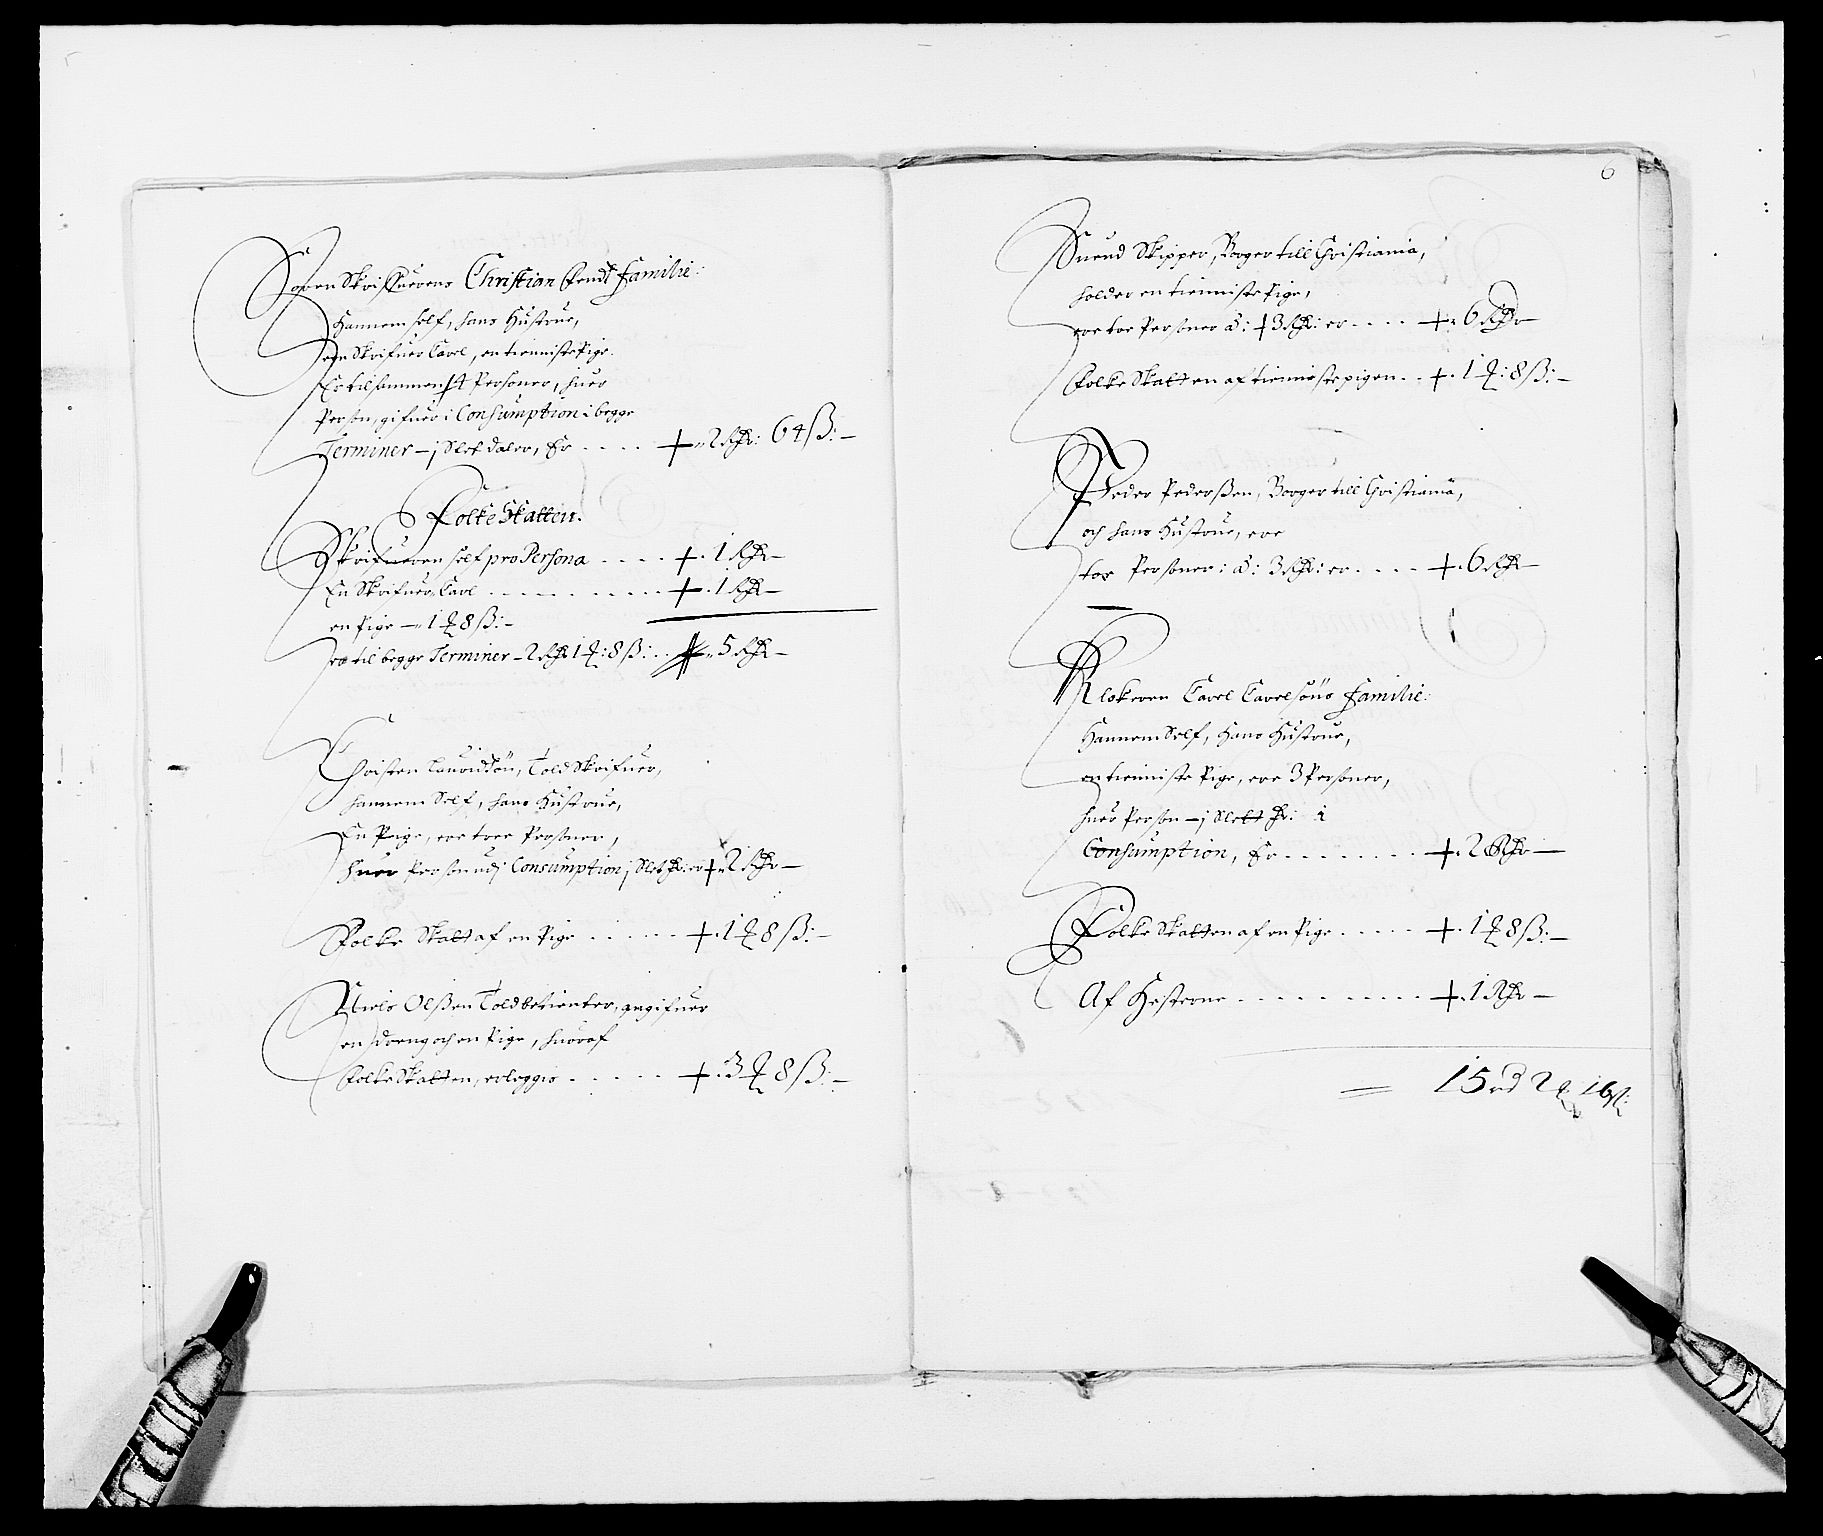 Soren Skrifuerens Christian Fendt Familie:
Hannem self, hans Hustrue,
een Skrifuer Carel, en tienniste Pige.
Er tilsammen 4 Personer, huer
Person gifuer i Consumption i begge
Terminer – j Slet daler, Er . . . . 2 Rdr: 64 ß: –
Folke Skatten.
Skrifueren self pro Persona . . . . 1 Rdr –
En Skrifuer Carl . . . . . . . . . . 1 Rdr –
en Pige – 1 ℔ 8 ß: –
er til begge Terminer – 2 Rdr 1 ℔: 8 ß: . . 5 Rdr –
Christen Lauridsön, Told Skrifuer,
hannem Self, hans Hustrue,
En Pige, ere tree Personer,
huer Person udj Consumption j Slet dr: er 2 Rdr –
Folke Skatt af en Pige . . . . . . 1 ℔ 8 ß: –
Niels Olßen Toldbetienter, angifuer
en dreng och en Pige, huoraf
Folke Skatten, erlegges . . . . . 3 ℔ 8 ß: –
6
Suend Skipper, Borger till Christiania,
holder en tienniste Pige,
ere toe Personer á: 3 Rdr: er . . . . 6 Rdr –
Folke Skatten af tienniste pigen . . 1 ℔: 8 ß: –
Peder Pederßen, Borger till Christiania,
och hans Hustrue, ere
toe Personer: á: 3 Rdr: er . . . . 6 Rdr –
Klokeren Carel Carelsöns Familie:
Hannem Self, Hans Hustrue,
en tienniste Pige, ere 3 Personer,
huer Person – j Slett dr: i
Consumption, Er . . . . . . . . 2 Rdr –
Folke Skatten af en Pige . . . . . 1 ℔ 8 ß: –
Af Hesterne . . . . . . . . . . . 1 Rdr –
= 15 rd 2 ℔ 16 ß: